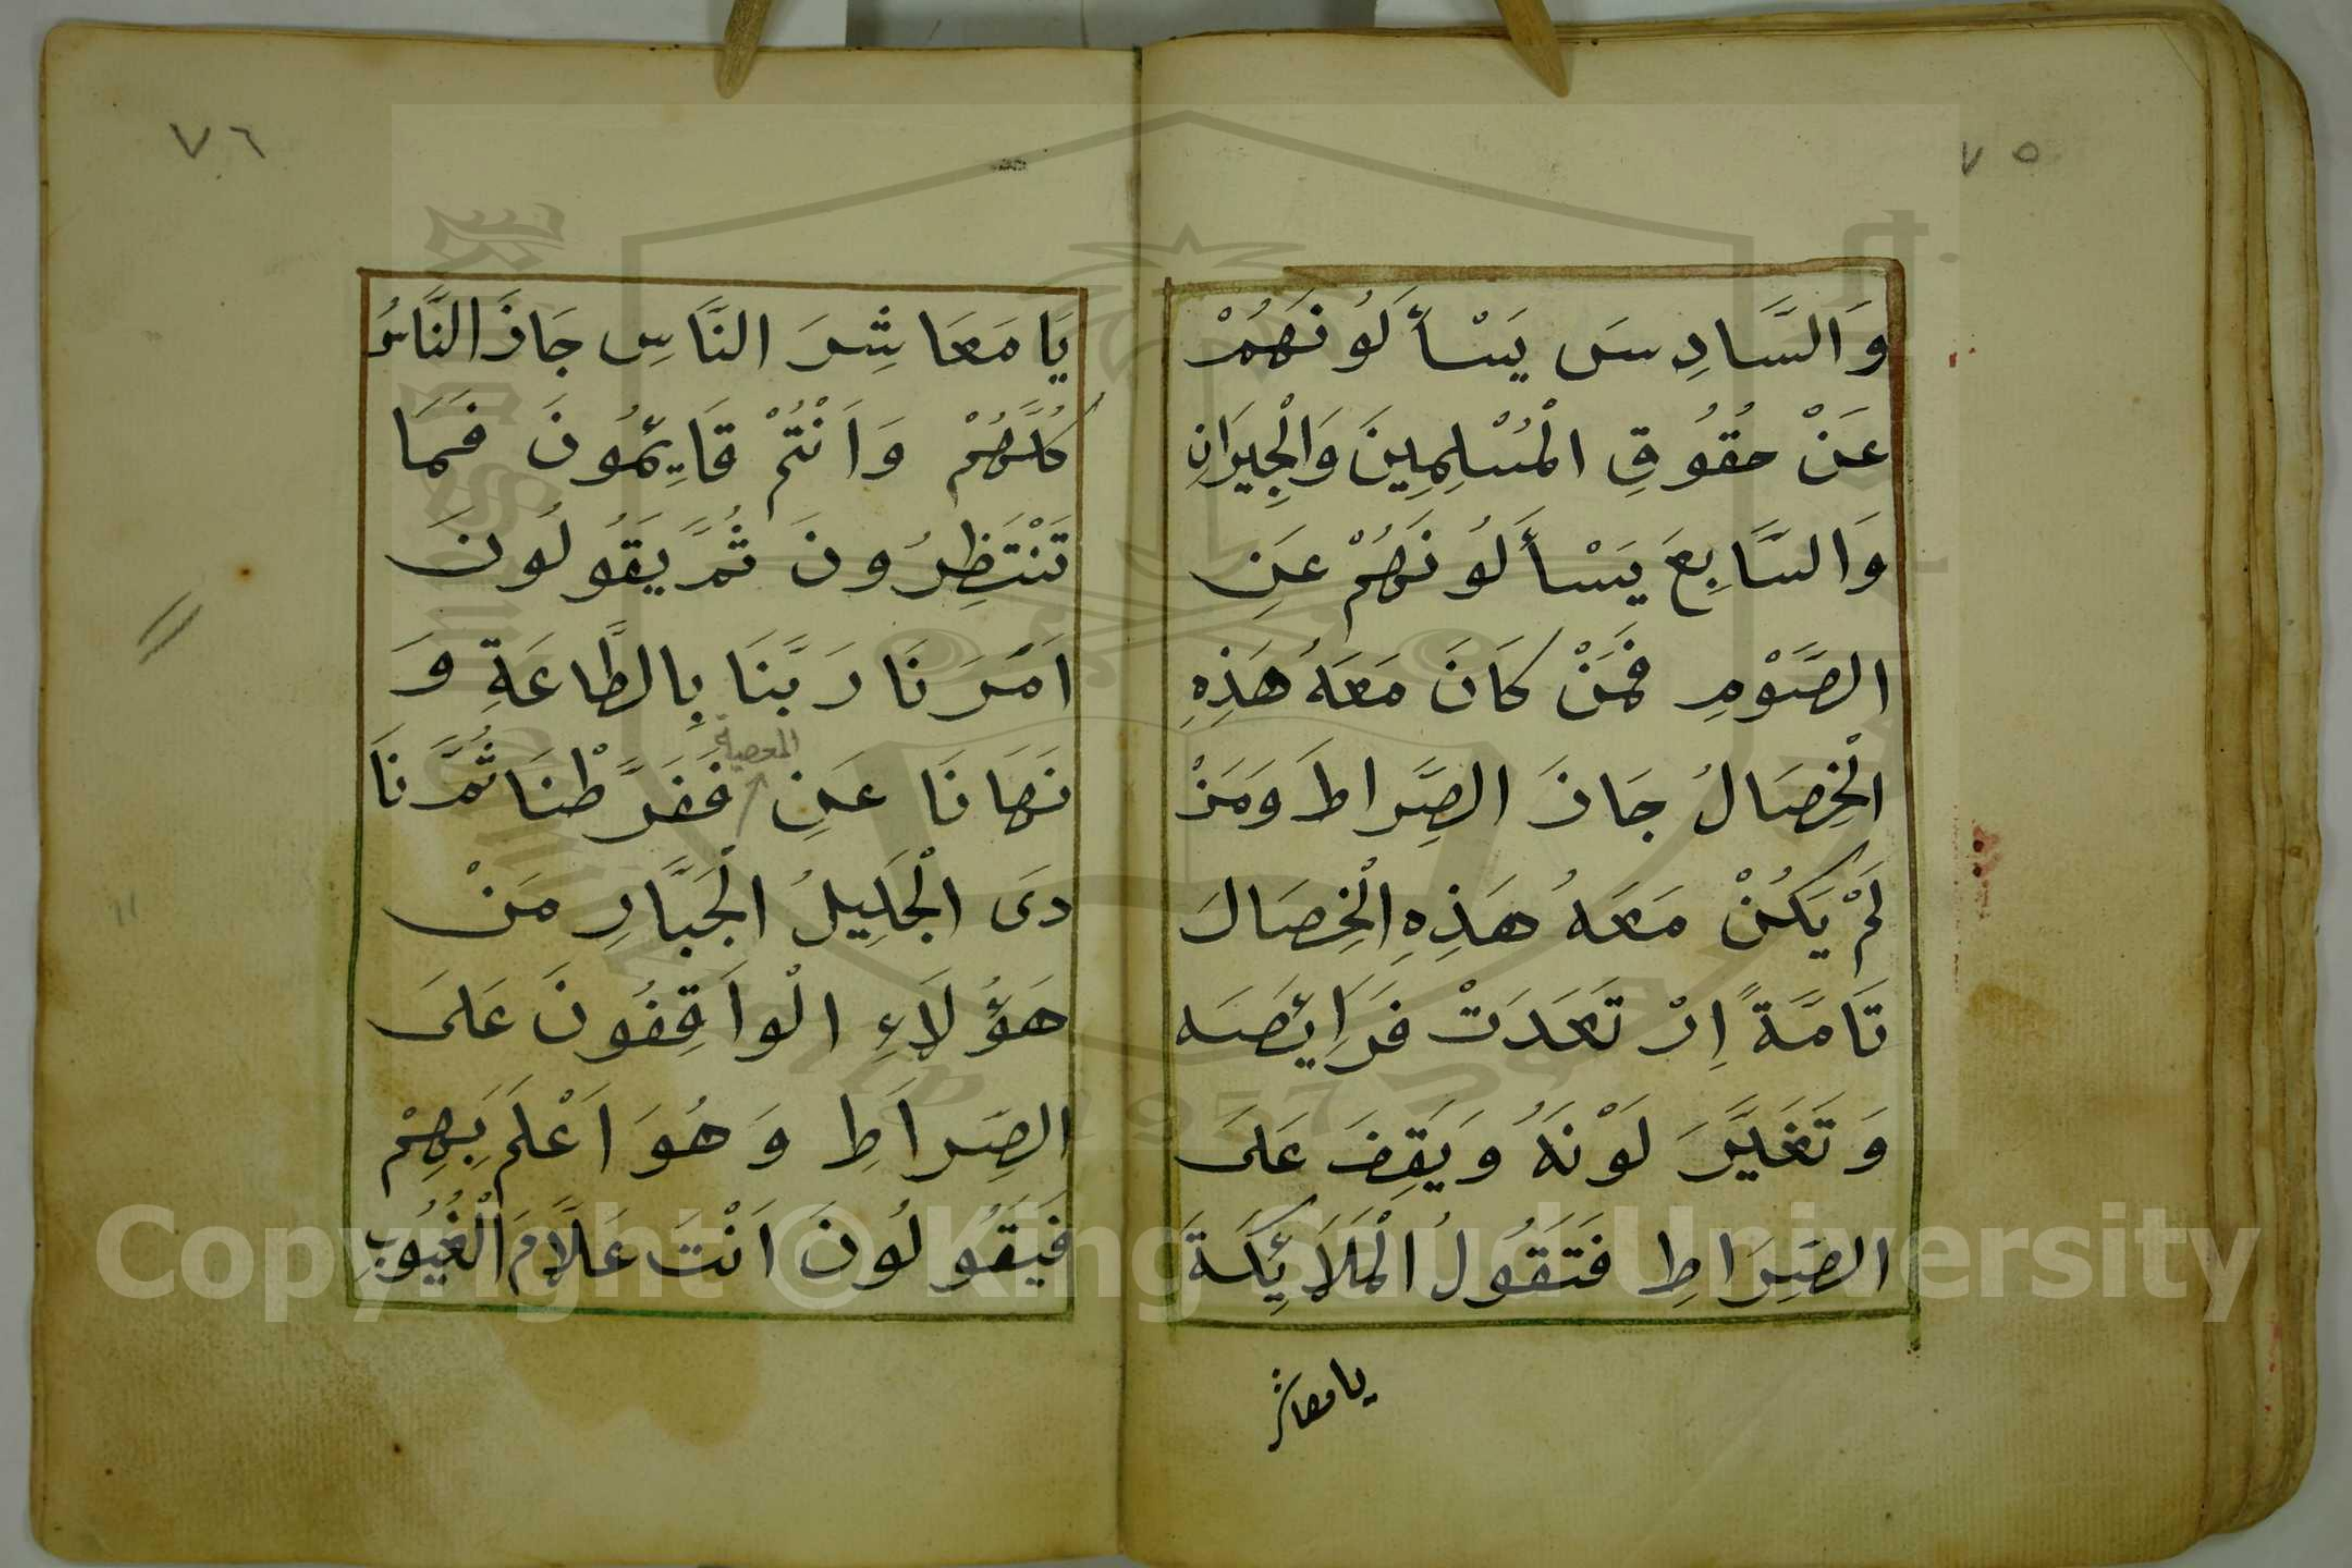 ٧٥
وَالسَّادِسَ يَسْأَلُونَهُمْ
عَنْ حُقُوقِ الْمُسْلِمِينَ وَالْجِيرَانِ
وَالسَّابِعَ يَسْأَلُونَهُمْ عَنِ
الصَّوْمِ فَمَنْ كَانَ مَعَهُ هَذِهِ
الْخِصَالُ جَازَ الصِّرَاطَ وَمَنْ
لَمْ يَكُنْ مَعَهُ هَذِهِ الْخِصَالَ
تَامَّةً اِرْتَعَدَتْ فَرَائِصَه
وَتَغَيَّرَ لَوْنَهُ وَيَقِفَ عَلَى
الصِّرَاطِ فَتَقُولُ الْمَلَائِكَةَ
يا معاشر
٧٦
يَا مَعَاشِرَ النَّاسِ جَازَ النَّاسُ
كُلُّهُمْ وَاَنْتُمْ قَائِمُونَ فَمَا
تَنْتَظِرُونَ ثُمَّ يَقُولُونَ
اَمَرَنَا رَبَّنَا بِالطَّاعَةِ وَ
نَهَانَا عَنِ المعصية فَفَرَّطْنَا ثُمَّ نَا
دَى الْجَلِيلُ الْجَبَّارِ مَنْ
هَؤُلَاءِ الْوَاقِفُونَ عَلَى
الصِّرَاطِ وَهُوَ اَعْلَمَ بِهِمْ
فَيَقُولُونَ اَنْتَ عَلَّامَ الْغُيُوبِ
Copyright © King Saud University
1957